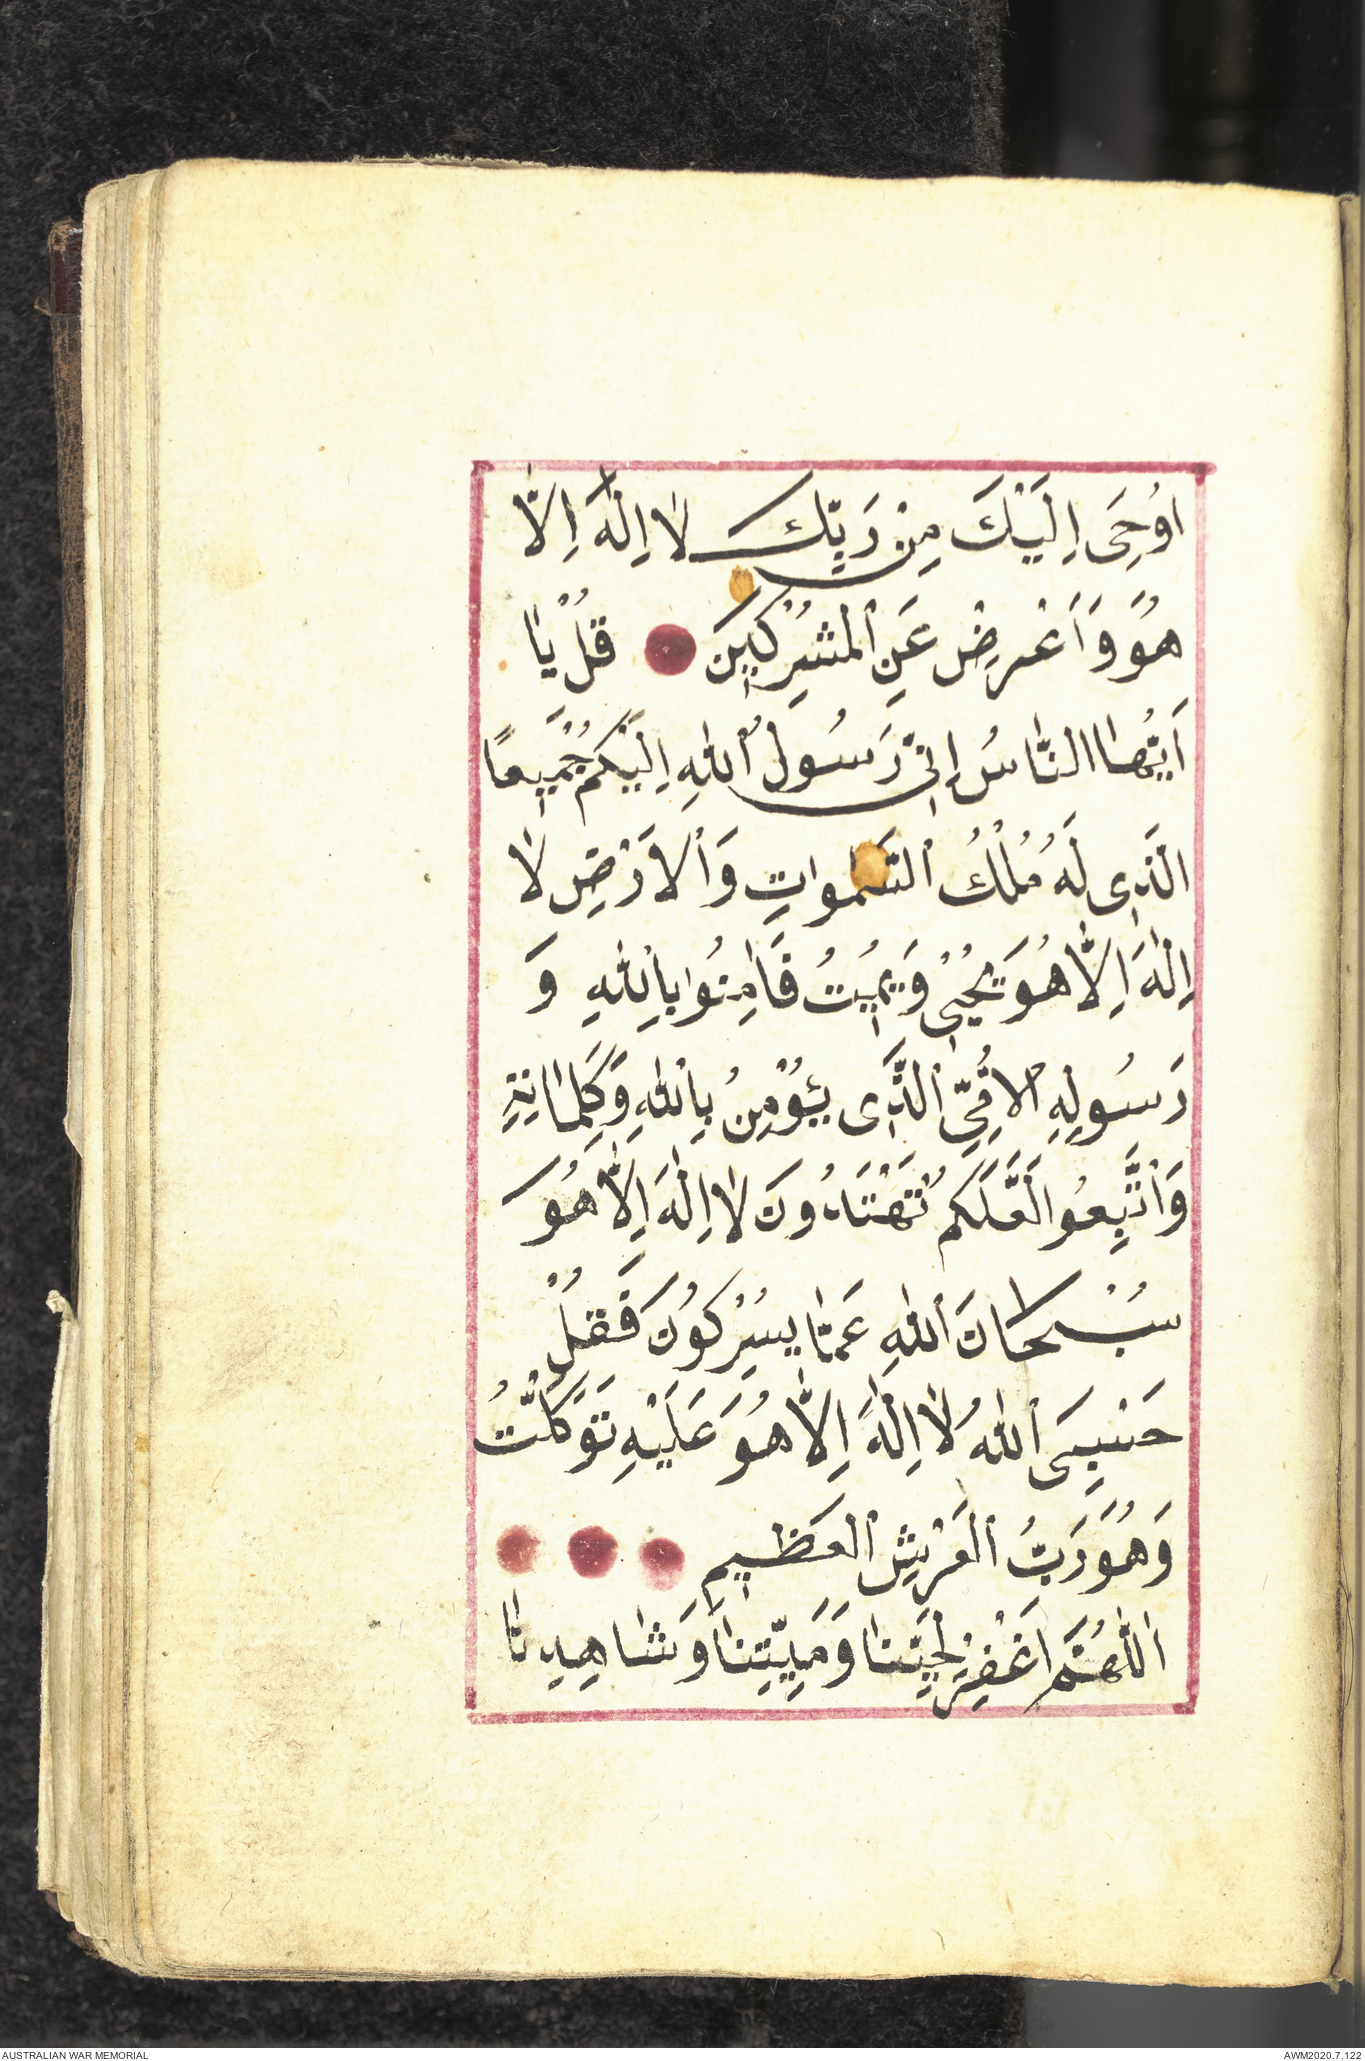 اُوحِىَ اِلَيْكَ مِنْ رَبِّكَ لَا اِلٰهَ اِلَّا
هُوَ وَاَعْرِضْ عَنِ الْمُشْرِكِينَ قُلْ يَا
اَيُّهَا النَّاسُ اِنِّى رَسُولُ اللّٰهِ اِلَيْكُمْ جَمِيعًا
الَّذِى لَهُ مُلْكُ السَّمٰوَاتِ وَالْاَرْضِ لَا
اِلٰهَ اِلَّا هُوَ يُحْيِى وَيُمِيتُ فَاٰمِنُوا بِاللّٰهِ وَ
رَسُولِهِ الْاُمِّىِّ الَّذِى يُؤْمِنُ بِاللّٰهِ وَكَلِمَاتِهِ
وَاتَّبِعُوا لَعَلَّكُمْ تَهْتَدُونَ لَا اِلٰهَ اِلَّا هُوَ
سُبْحَانَ اللّٰهِ عَمَّا يُشْرِكُونَ فَقُلْ
حَسْبِىَ اللّٰهُ لَا اِلٰهَ اِلَّا هُوَ عَلَيْهِ تَوَكَّلْتُ
وَهُوَ رَبُّ الْعَرْشِ الْعَظِيمِ
اَللّٰهُمَّ اغْفِرْ لِحَيِّنَا وَمَيِّتِنَا وَشَاهِدِنَا
AUSTRALIAN WAR MEMORIAL
AWM2020.7.122